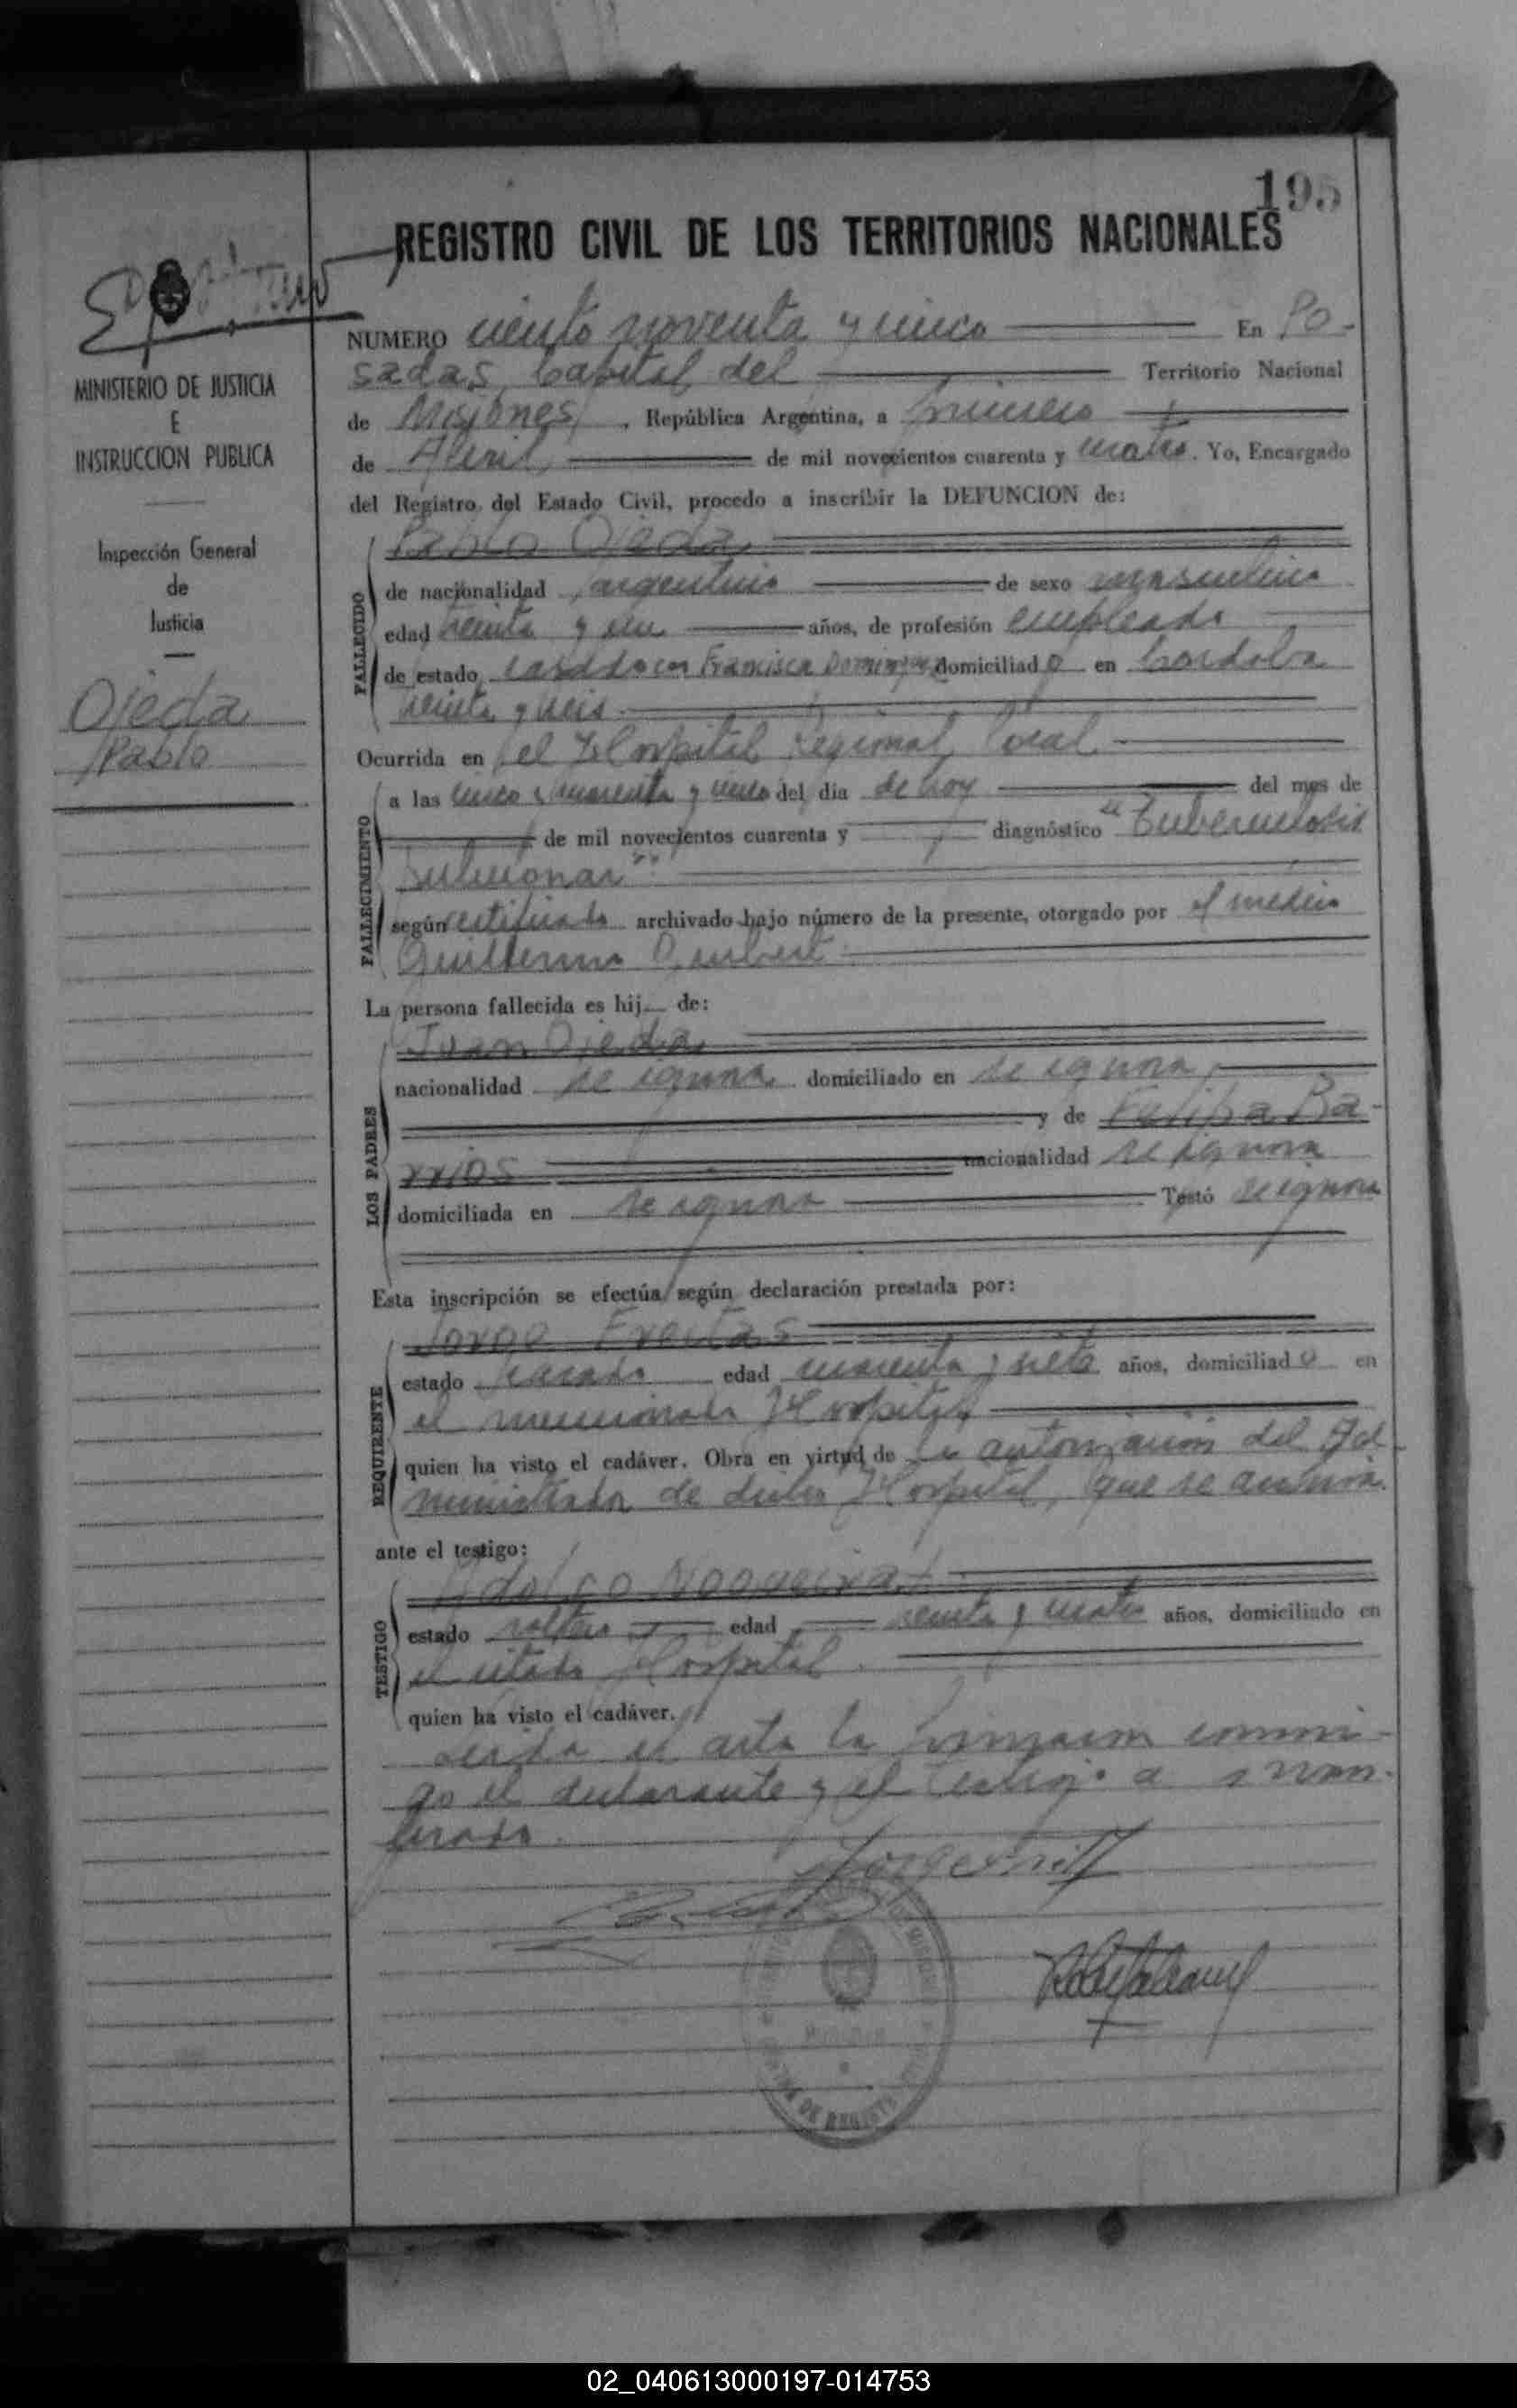 195
REGISTRO CIVIL DE LOS TERRITORIOS NACIONALES
MINISTERIO DE JUSTICIA
E
INSTRUCCION PUBLICA
Inspección General
de
Justicia
Ojeda
Pablo
NUMERO ciento noventa y cinco En Po-
sadas, Capital del Territorio Nacional
de Misiones, República Argentina, a primero
de Abril de mil novecientos cuarenta y cuatro. Yo, Encargado
del Registro del Estado Civil, procedo a inscribir la DEFUNCION de:
FALLECIDO
Pablo Ojeda
de nacionalidad argentino de sexo masculino
edad treinta y un años, de profesión empleado
de estado casado con Francisca Dominguez domiciliado en Cordoba
treinta y seis
Ocurrida en el Hospital Regional local
FALLECIMIENTO
a las cinco y cuarenta y cinco del día de hoy del mes de
de mil novecientos cuarenta y diagnóstico "Tuberculosis
pulmonar".
según certificado archivado bajo número de la presente, otorgado por el médico
Guillermo
La persona fallecida es hij de:
LOS PADRES
Juan Ojeda
nacionalidad se ignora domiciliado en se ignora
y de Felipa Ba-
rrios nacionalidad se ignora
domiciliada en se ignora Testó se ignora
Esta inscripción se efectúa según declaración prestada por:
REQUIRENTE
Jorge Freitas
estado casado edad cuarenta y siete años, domiciliado en
el mencionado Hospital
quien ha visto el cadáver. Obra en virtud de la autorización del Ad-
ministrador de dicho Hospital, que se archiva.
ante el testigo:
TESTIGO
Adolfo Nogueira
estado soltero edad treinta y cuatro años, domiciliado en
el citado Hospital.
quien ha visto el cadáver.
Leida el acta la firmaron conmi-
go el declarante y el testigo
02_040613000197-014753